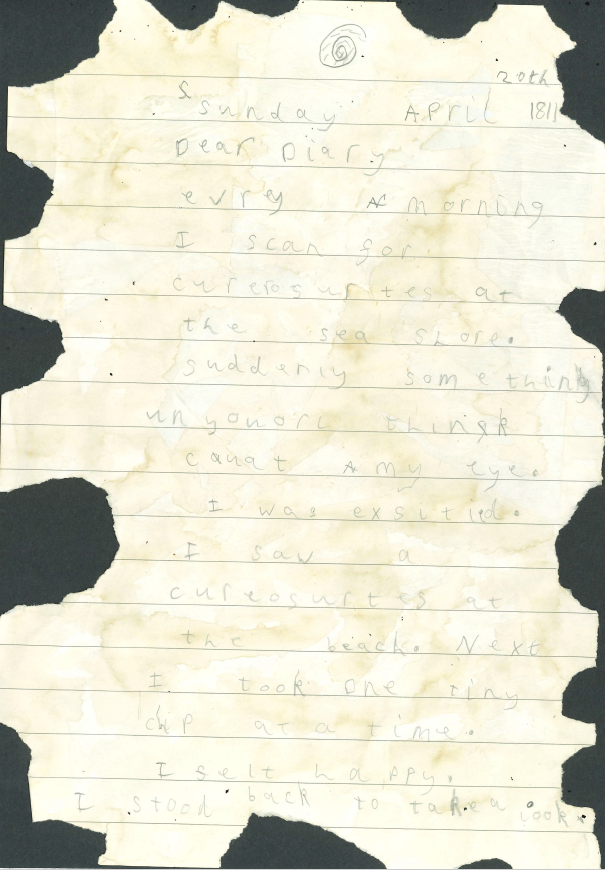 20th
S
sunday APril 1811
Dear Diary
evrey morning
I scan for
cureosurtes at
the sea shore.
suddenly something
unyonori thingk
caugt my eye.
I was exsitid.
I saw a
cureosurtes at
the beach. Next
I took one tiny
chip at a time.
I felt happy.
I stood back to take a look.